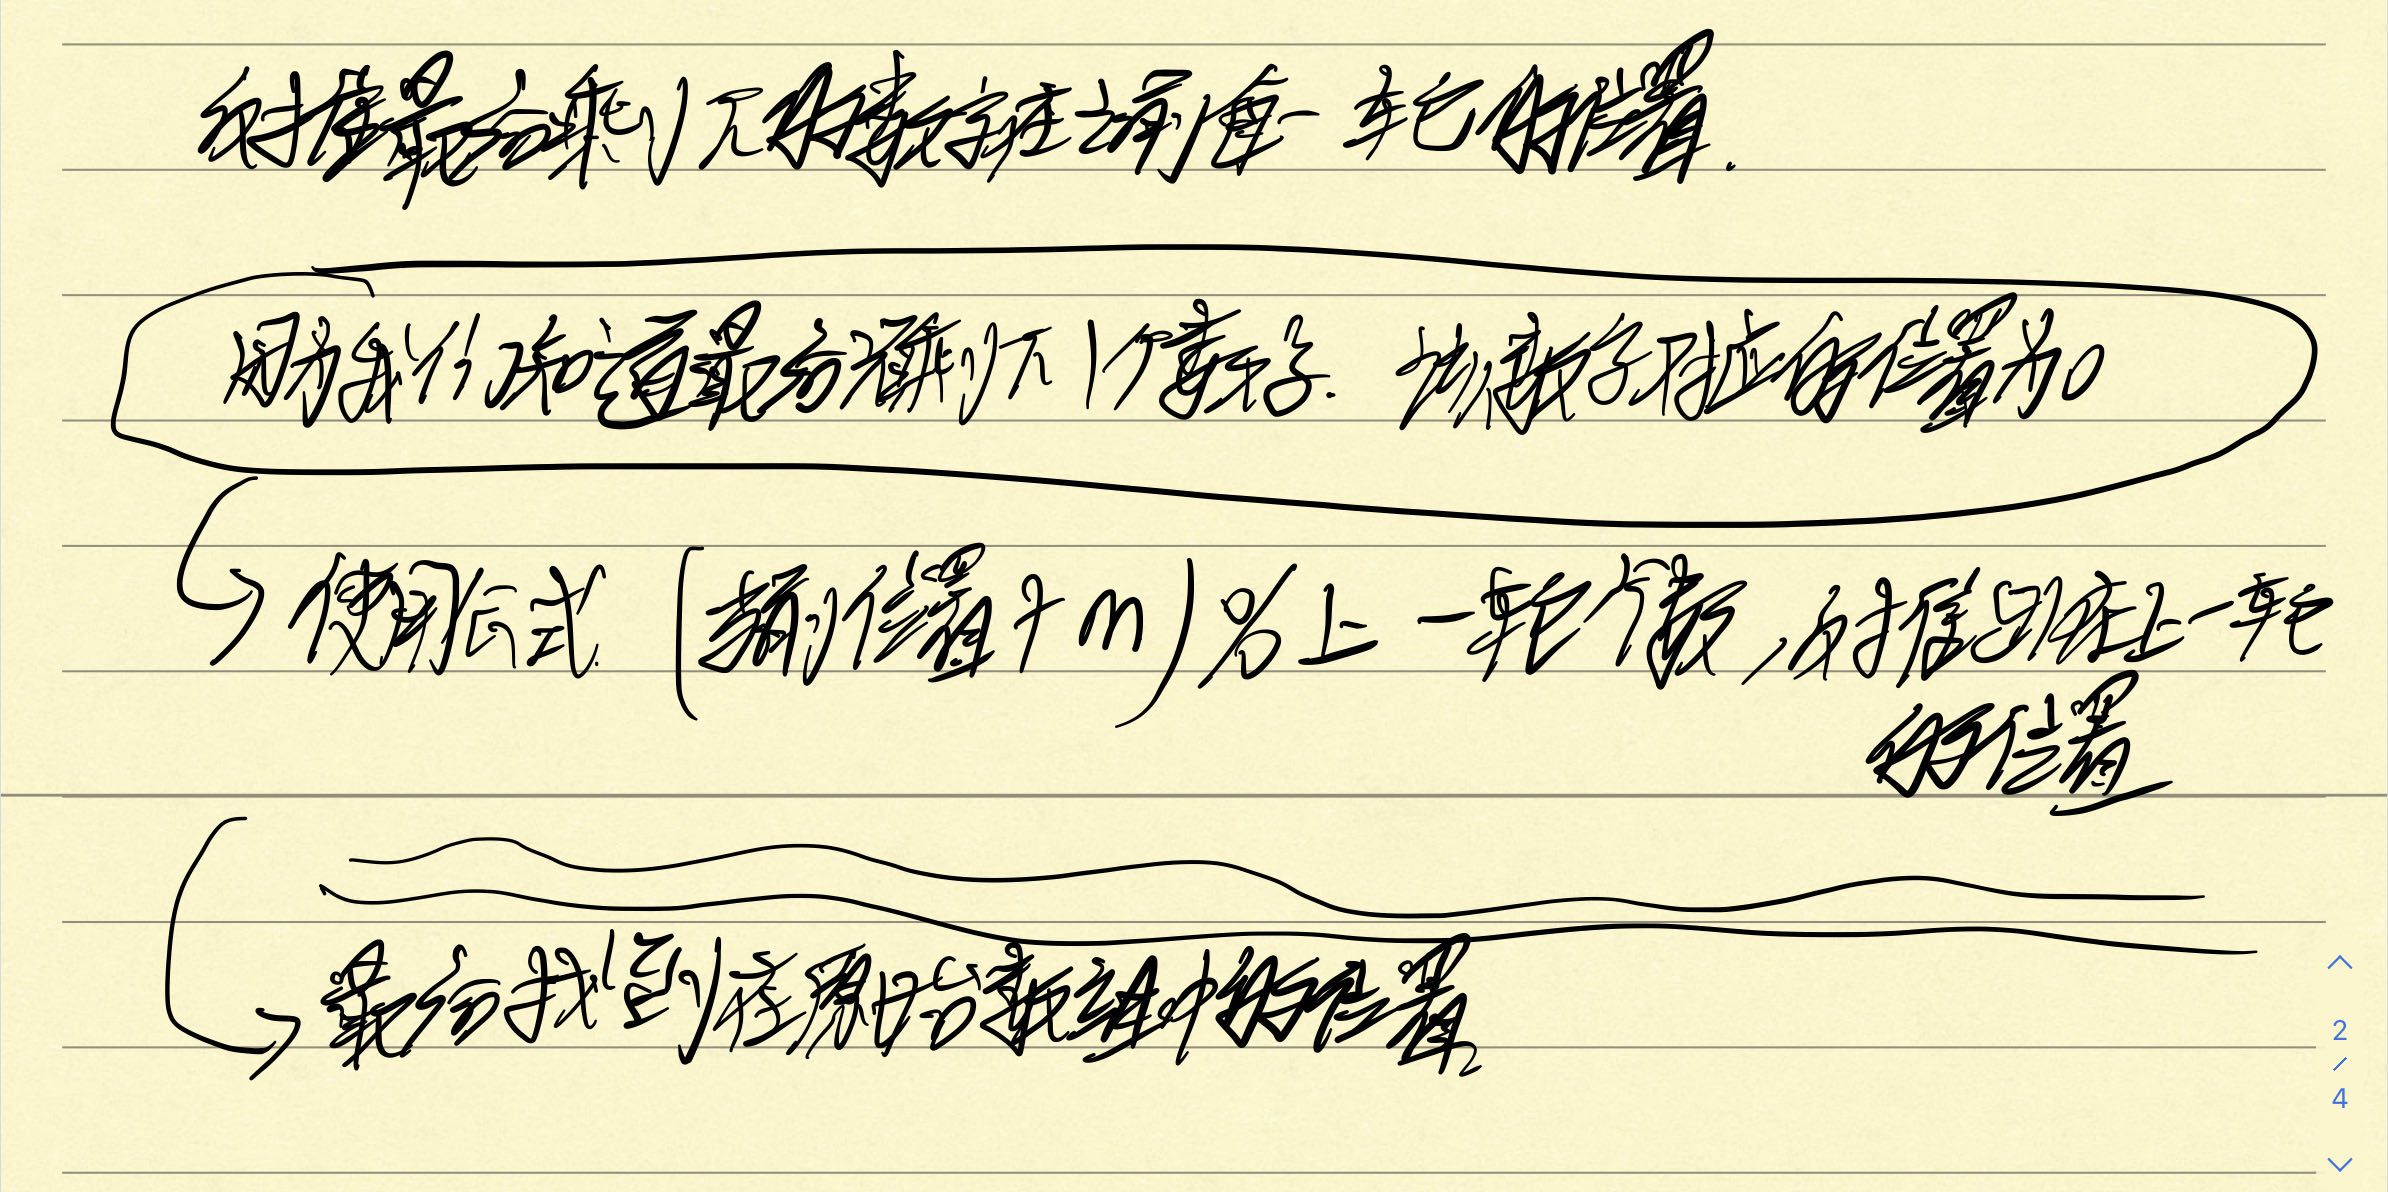 反推最后剩下的数字在之前每一轮的位置.
因为我们知道最后只剩下1个数字. 此数字对应的位置为0
使用公式 (当前位置+m)%上一轮个数,反推出在上一轮
的位置
最后找到在原始数组中的位置
2
/
4